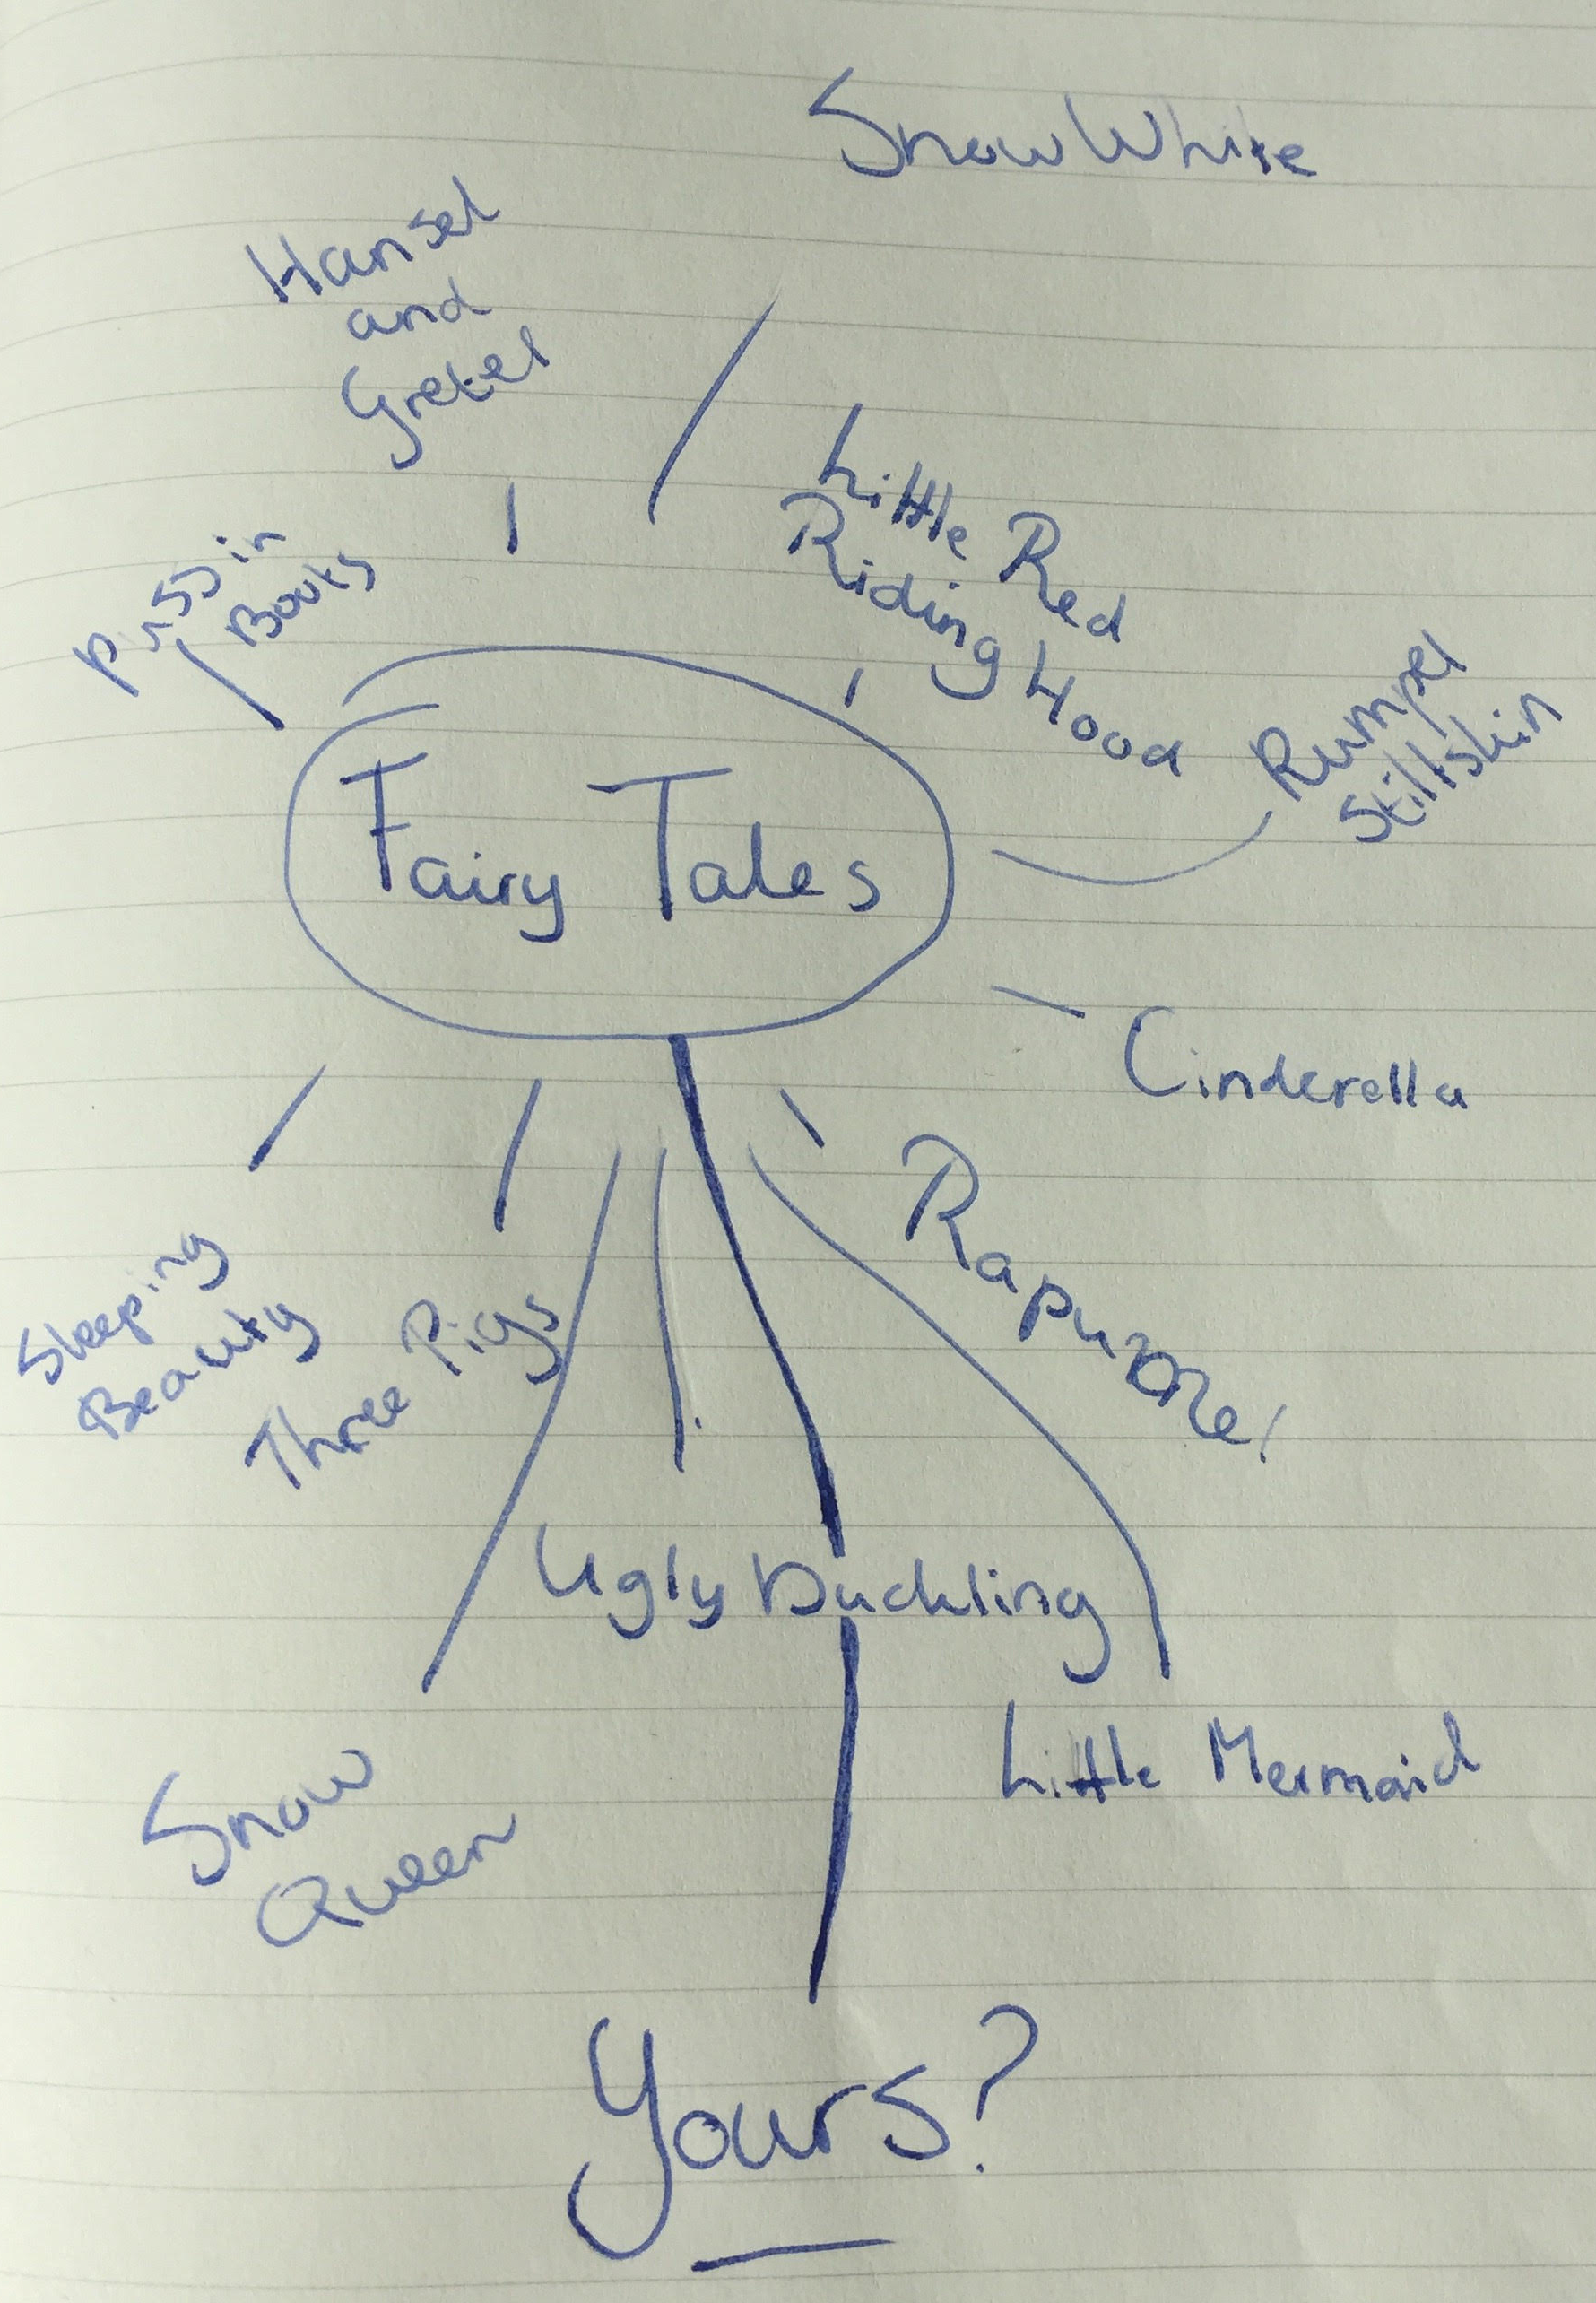 Snow White
Hansel
and
Gretel
Little Red
Riding Hood
Puss in
Boots
Rumpel
stiltskin
Fairy Tales
Cinderella
Rapunzel
Sleeping
Beauty
Three Pigs
Ugly Duckling
Little Mermaid
Snow
Queen
Yours?